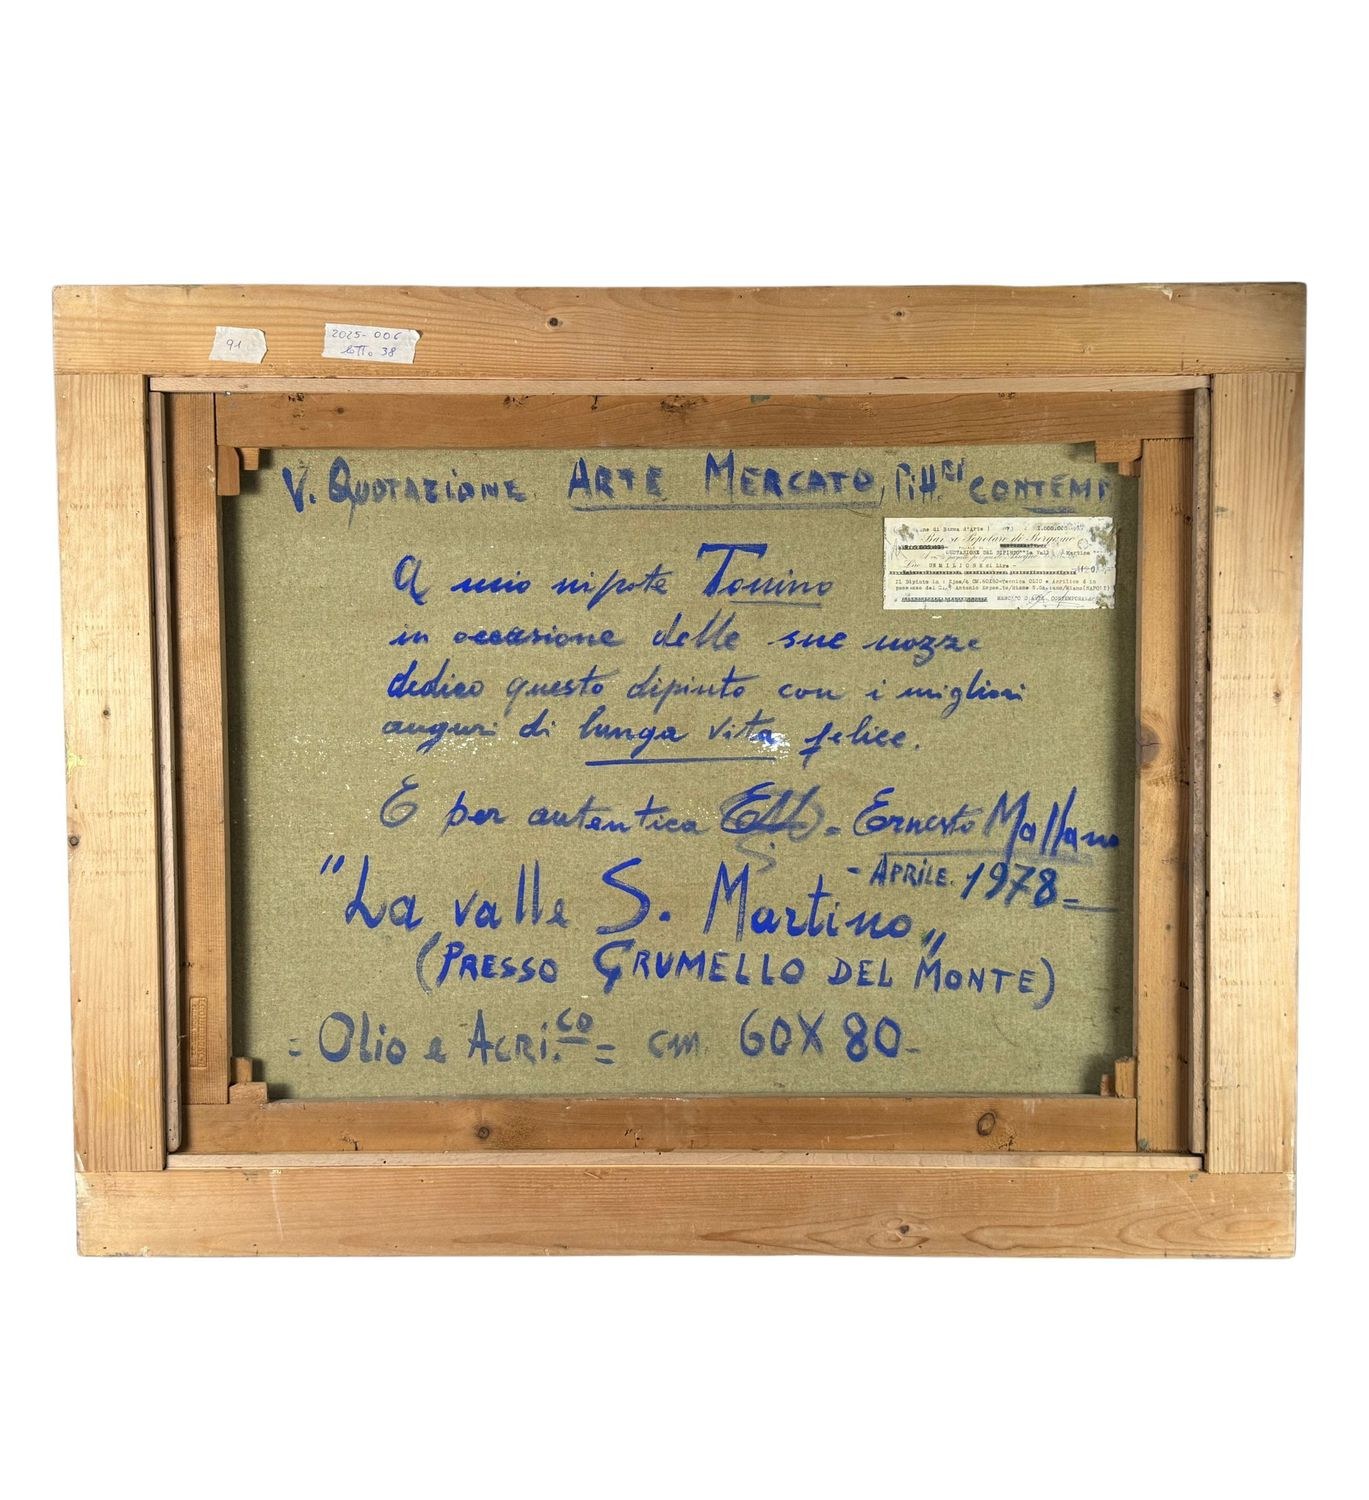 91
2025-006
lotto 38
V. QUOTAZIONE ARTE MERCATO, Pitt.ci CONTEMP
A mio nipote Tonino
in occasione delle sue nozze
dedico questo dipinto con i migliori
auguri di lunga vita felice.
E per autentica = Ernesto Mallano
- APRILE. 1978 =
"La valle S. Martino"
(PRESSO GRUMELLO DEL MONTE)
= Olio e ACRI.CO = cm. 60X80-
di Borsa d'Arte 1.000.000
Popolare di Bergamo
QUOTAZIONE DEL DIPINTO "La Valle Martino
UN MILIONE di Lire -
Il Dipinto in : CM.60X80=Tecnica OLIO e Acrilico è in
possesso del Antonio S.Gaetano/Miano(NAPOLI)
MERCATO D'ARTE CONTEMPORANEA